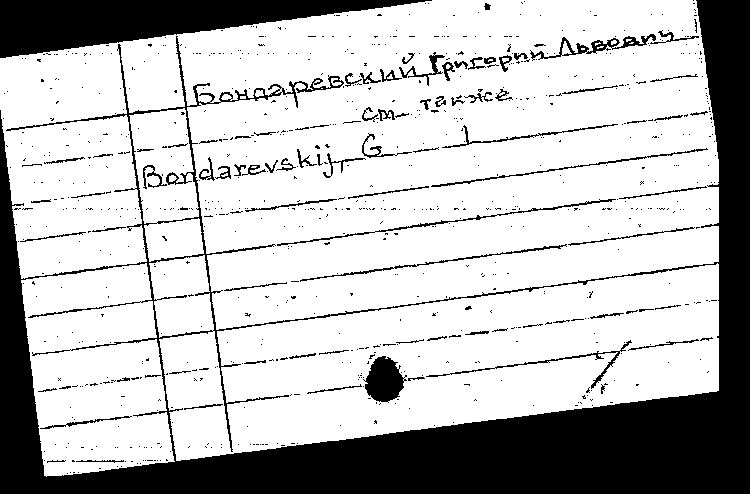 Бондаревский, Григорий Львович
см также
Bondarevskij, G